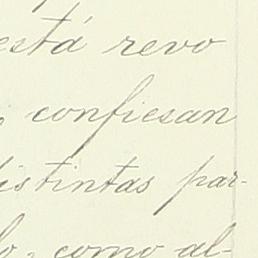 está revo
, confiesan
distintas par-
lo, como al-